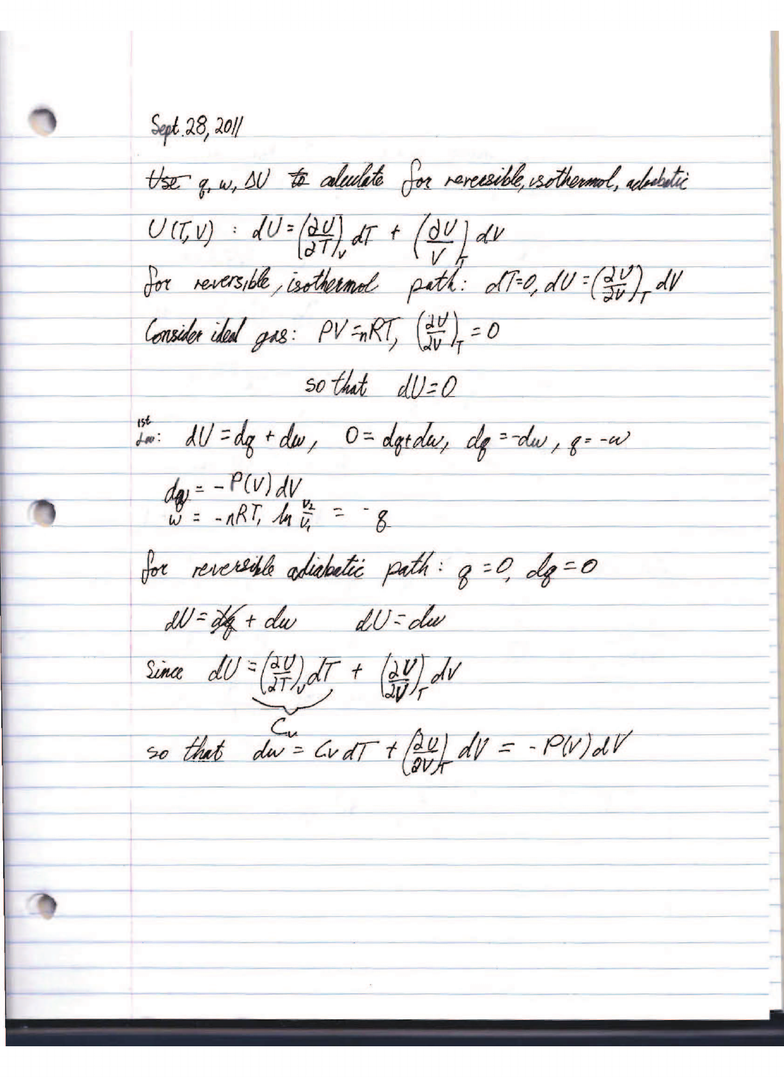 Sept. 28, 2011
Use q, w, ΔU to calculate for reversible, isothermol, adiabatic
U(T,V) : dU = (∂U/∂T)_V dT + (∂U/V)_T dV
for reversible, isothermol path: dT=0, dU = (∂U/∂V)_T dV
Consider ideal gas: PV=nRT, (∂U/∂V)_T = 0
so that dU=0
1st Law: dU = dq + dw, 0 = dq+dw, dq = -dw, q = -w
dq = - P(V) dV
w = -nRT, ln V2/V1 = -q
for reversible adiabatic path: q = 0, dq = 0
dU = dq + dw dU = dw
Since dU = (∂U/∂T)_V dT + (∂U/∂V)_T dV
Cv
so that dw = Cv dT + (∂U/∂V)_T dV = - P(V) dV